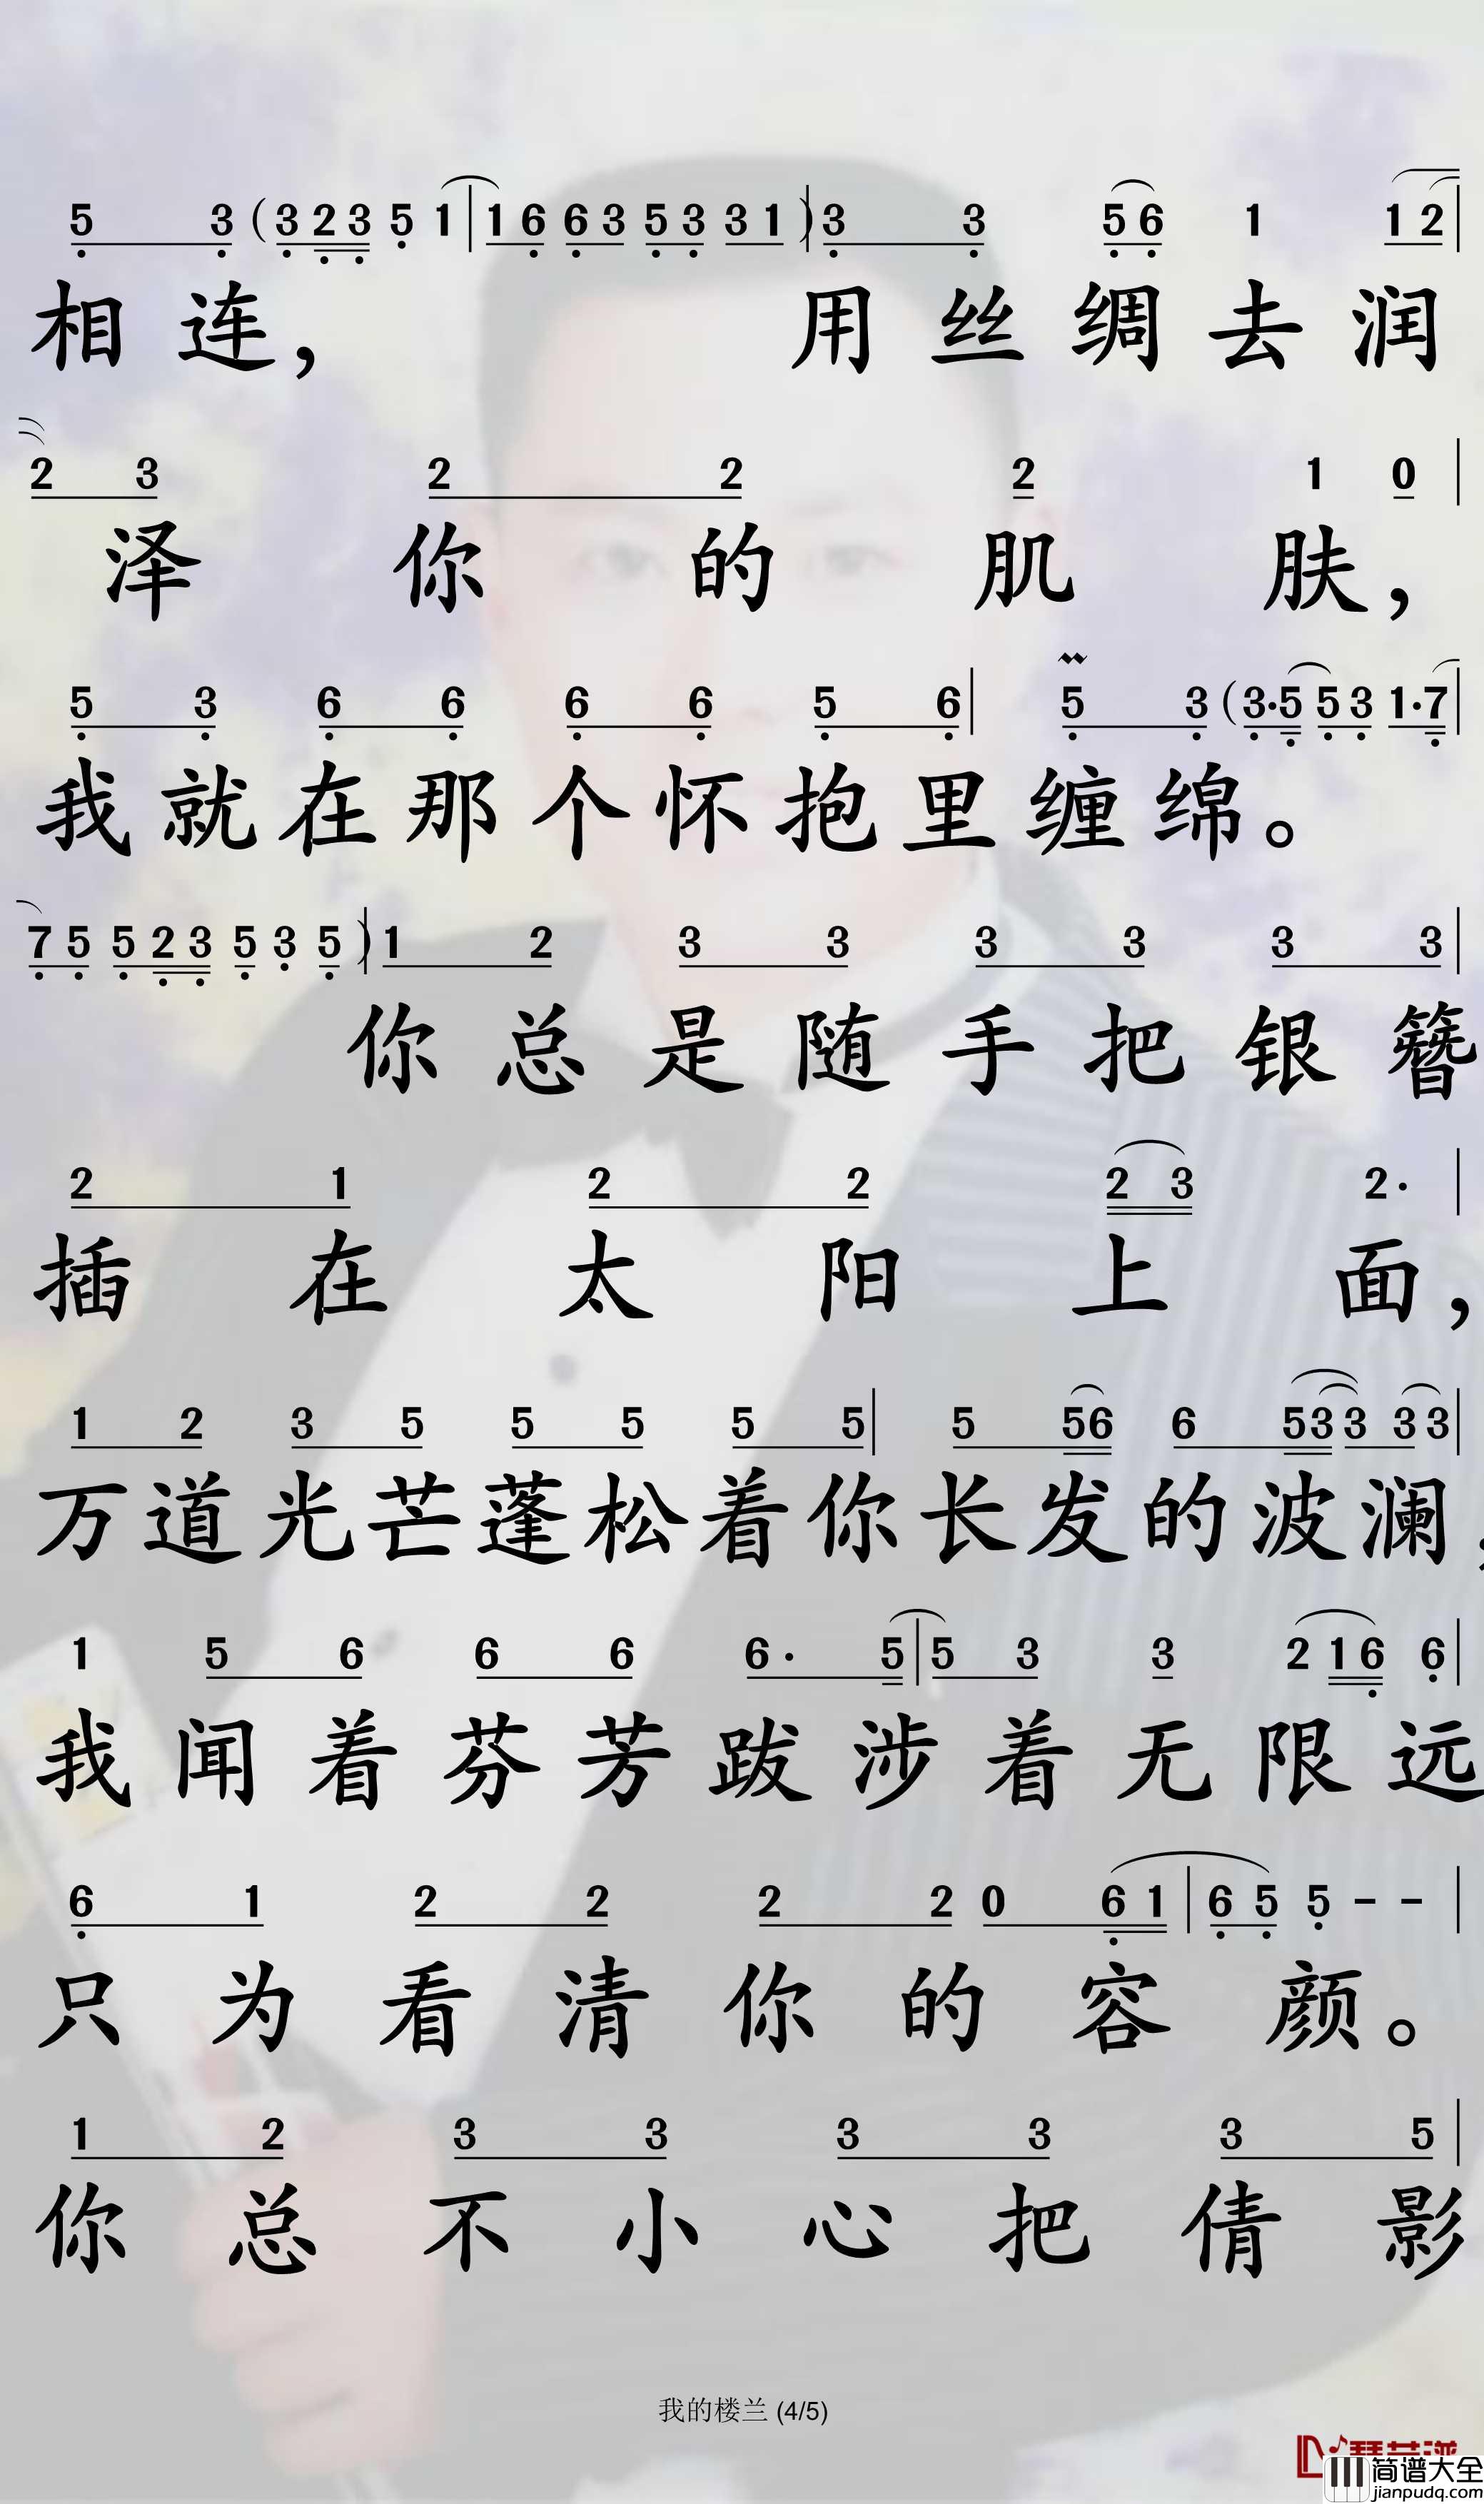 5 3 (3 2 3 5 1 | 1 6 6 3 5 3 3 1 ) | 3 3 5 6 1 1 2 |
相连， 用丝绸去润
2 3 2 2 2 1 0 |
泽你的肌肤，
5 3 6 6 6 6 5 6 | 5 3 (3·5 5 3 1·7 |
我就在那个怀抱里缠绵。
7 5 5 2 3 5 3 5 ) | 1 2 3 3 3 3 3 3 |
你总是随手把银簪
2 1 2 2 2 3 2· |
插在太阳上面，
1 2 3 5 5 5 5 5 | 5 56 6 53 3 3 3 |
万道光芒蓬松着你长发的波澜，
1 5 6 6 6 6· 5 | 5 3 3 2 1 6 6 |
我闻着芬芳跋涉着无限远
6 1 2 2 2 2 0 6 1 | 6 5 5 - - |
只为看清你的容颜。
1 2 3 3 3 3 3 5 |
你总不小心把倩影
我的楼兰 (4/5)
简谱大全
jianpudq.com